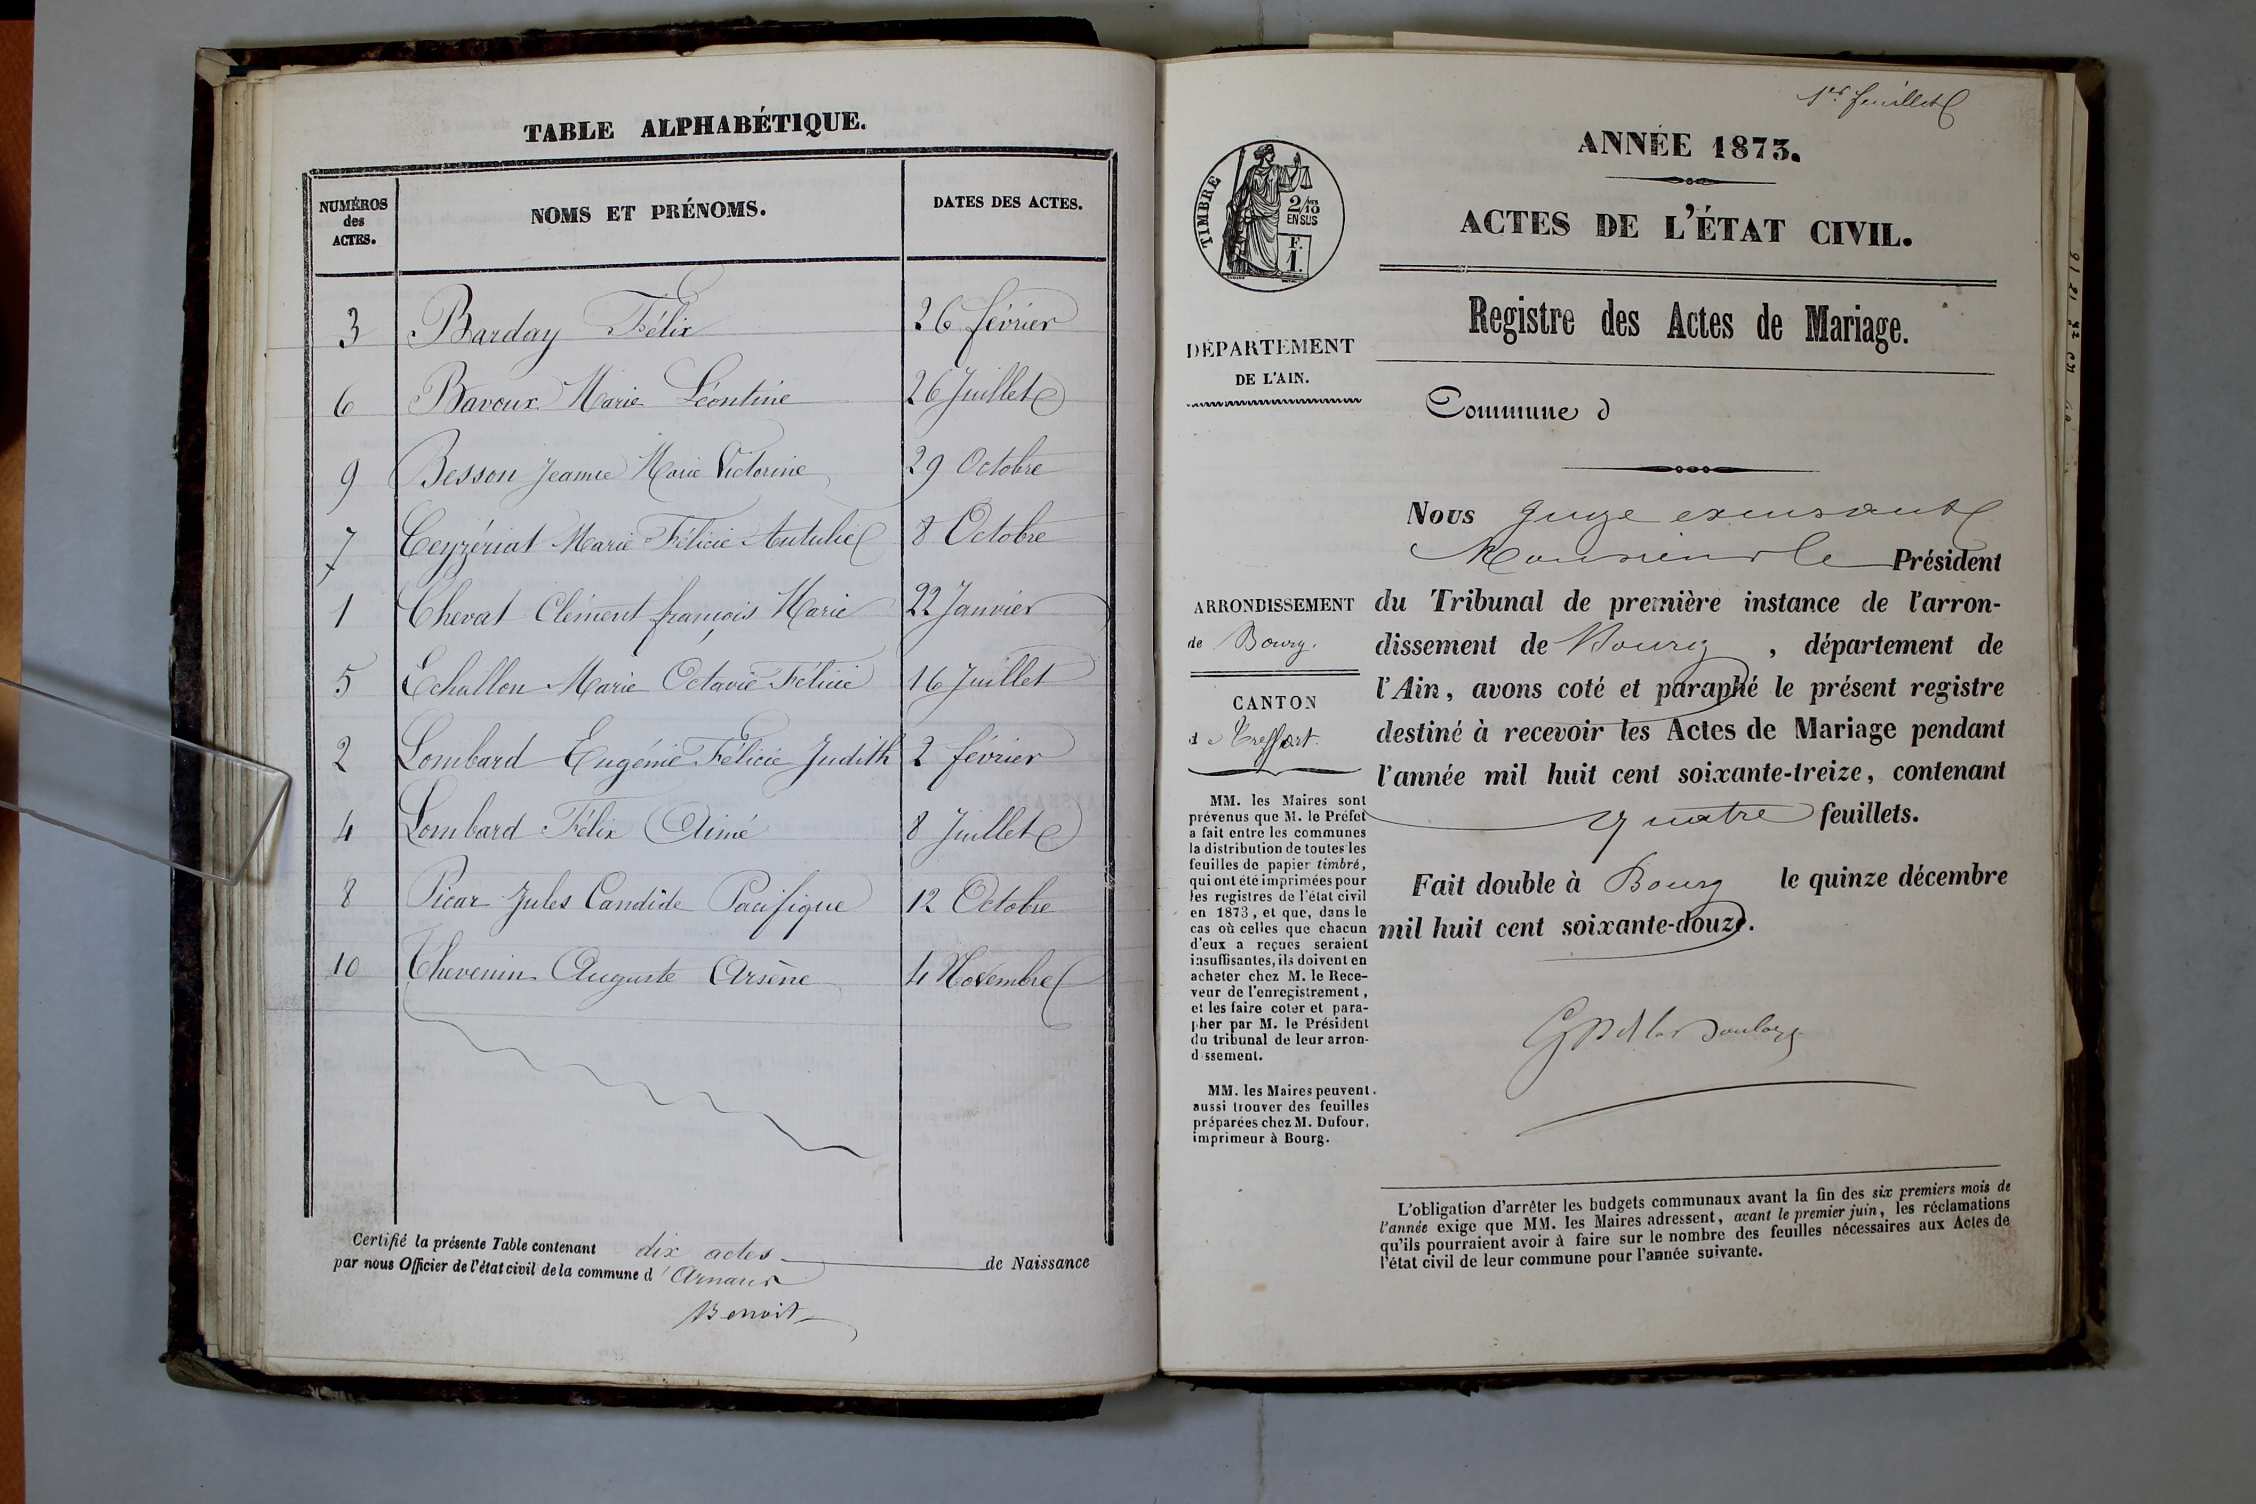 TABLE ALPHABÉTIQUE.
NUMÉROS
des
ACTES.
NOMS ET PRÉNOMS.
DATES DES ACTES.
3 Barday Félix 26 février
6 Bavoux Marie Léontine 26 Juillet
9 Besson Jeanne Marie Victorine 29 Octobre
7 Ceyzériat Marie Félicie 8 Octobre
1 Chevat Clément françois Marie 22 Janvier
5 Echallon Marie Octavie Félicie 16 Juillet
2 Lombard Eugénie Félicie Judith 2 février
4 Lombard Félix Aimé 8 Juillet
8 Picar Jules Candide Pacifique 12 Octobre
10 Thevenin Auguste Arsène 4 Novembre
Certifié la présente Table contenant dix actes de Naissance
par nous Officier de l'état civil de la commune d'Arnans
Benoit
1er feuillet
TIMBRE
2/10es
EN SUS
F.
1.
ANNÉE 1873.
ACTES DE L'ÉTAT CIVIL.
Registre des Actes de Mariage.
DÉPARTEMENT
DE L'AIN.
Commune d
ARRONDISSEMENT
de Bourg.
CANTON
de Treffort.
MM. les Maires sont
prévenus que M. le Préfet
a fait entre les communes
la distribution de toutes les
feuilles de papier timbré,
qui ont été imprimées pour
les registres de l'état civil
en 1873, et que, dans le
cas où celles que chacun
d'eux a reçues seraient
insuffisantes, ils doivent en
acheter chez M. le Rece-
veur de l'enregistrement,
et les faire coter et para-
pher par M. le Président
du tribunal de leur arron-
dissement.
MM. les Maires peuvent
aussi trouver des feuilles
préparées chez M. Dufour,
imprimeur à Bourg.
Nous Juge excusant
Monsieur le Président
du Tribunal de première instance de l'arron-
dissement de Bourg, département de
l'Ain, avons coté et paraphé le présent registre
destiné à recevoir les Actes de Mariage pendant
l'année mil huit cent soixante-treize, contenant
quatre feuillets.
Fait double à Bourg le quinze décembre
mil huit cent soixante-douze.
L'obligation d'arrêter les budgets communaux avant la fin des six premiers mois de
l'année exige que MM. les Maires adressent, avant le premier juin, les réclamations
qu'ils pourraient avoir à faire sur le nombre des feuilles nécessaires aux Actes de
l'état civil de leur commune pour l'année suivante.